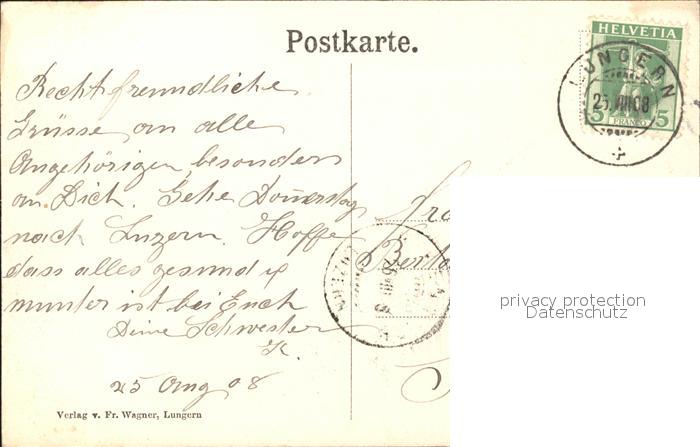 Postkarte.
HELVETIA
5 FRANCO 5
LUNGERN
25.VIII.08
Recht freundliche
Grüsse an alle
Angehörigen, besonders
an Dich. Gehe Donnerstag
nach Luzern. Hoffe
dass alles gesund &
munter ist bei Euch
Deine Schwester
K.
25 Aug 08
LUZERN
Verlag v. Fr. Wagner, Lungern
privacy protection
Datenschutz